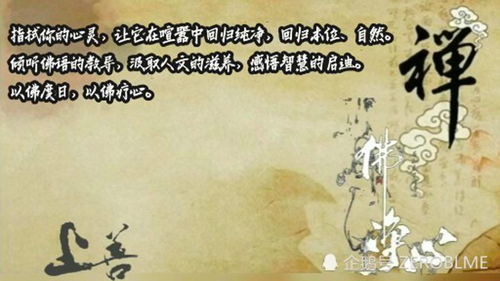 指拭你的心灵，让它在喧嚣中回归纯净，回归本位、自然。
倾听佛语的教导，汲取人文的滋养，感悟智慧的启迪。
以佛度日，以佛疗心。
禅
佛
心
上善
企鹅号 ZEROBLME